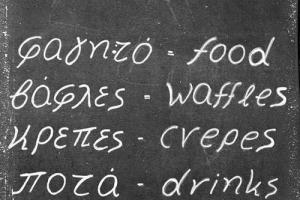 φαγητό = food
βάφλες = waffles
κρέπες - crepes
ποτά - drinks